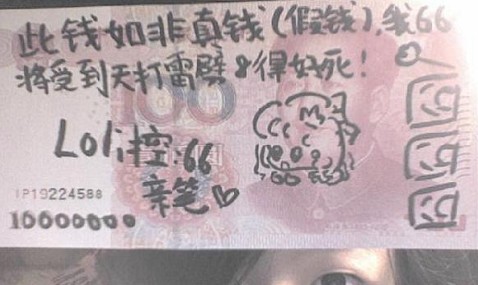 此钱如非真钱(假钱),我66
将受到天打雷劈8得好死!
100
Loli控:66
亲笔
1P19224588
10000000
囧
囧
囧